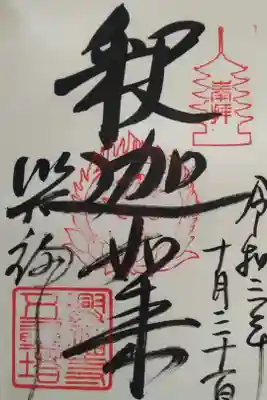 奉拝
令和二年
十月三十一日
釈迦如来
興福寺
興福寺
五重塔